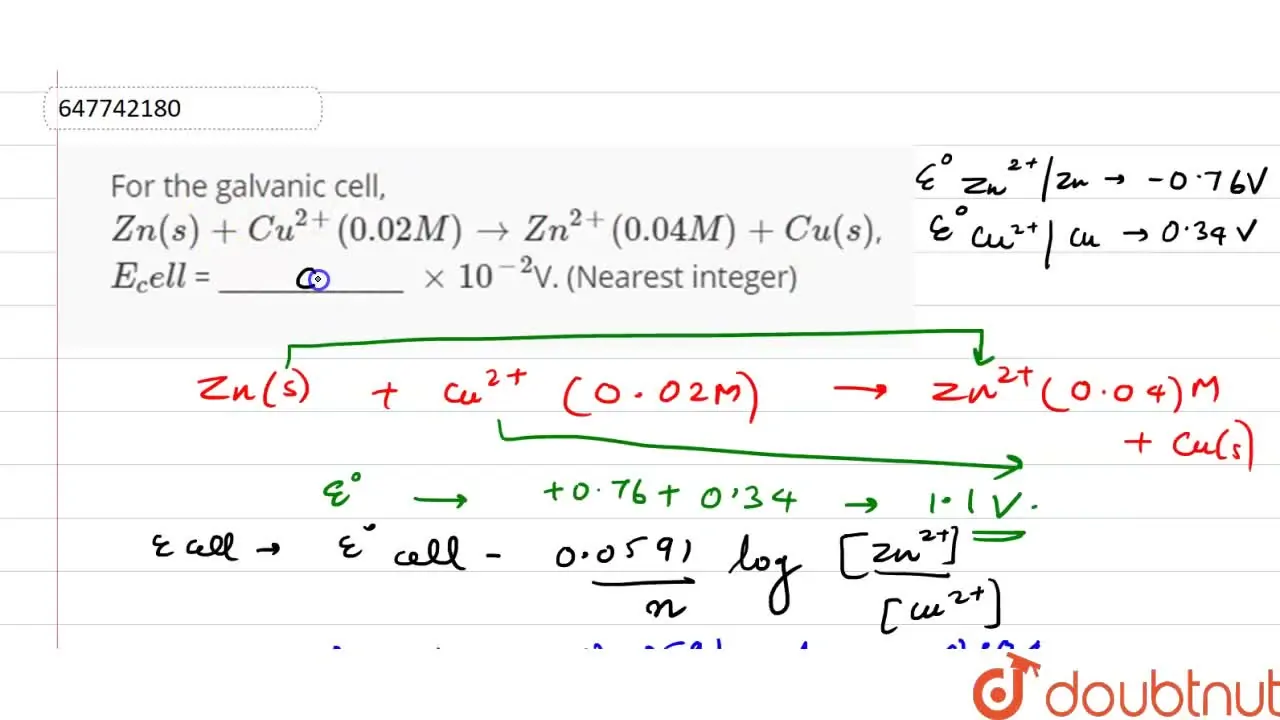 647742180
For the galvanic cell,
Zn(s) + Cu²⁺ (0.02M) → Zn²⁺ (0.04M) + Cu(s),
E_cell = ________ × 10⁻²V. (Nearest integer)
ε⁰ Zn²⁺/Zn → -0.76V
ε⁰ Cu²⁺/Cu → 0.34 V
Zn(s) + Cu²⁺ (0.02M) → Zn²⁺ (0.04) M
+ Cu(s)
ε⁰ → +0.76 + 0.34 → 1.1 V.
ε cell → ε⁰ cell - 0.0591/n log [Zn²⁺]/[Cu²⁺]
doubtnut